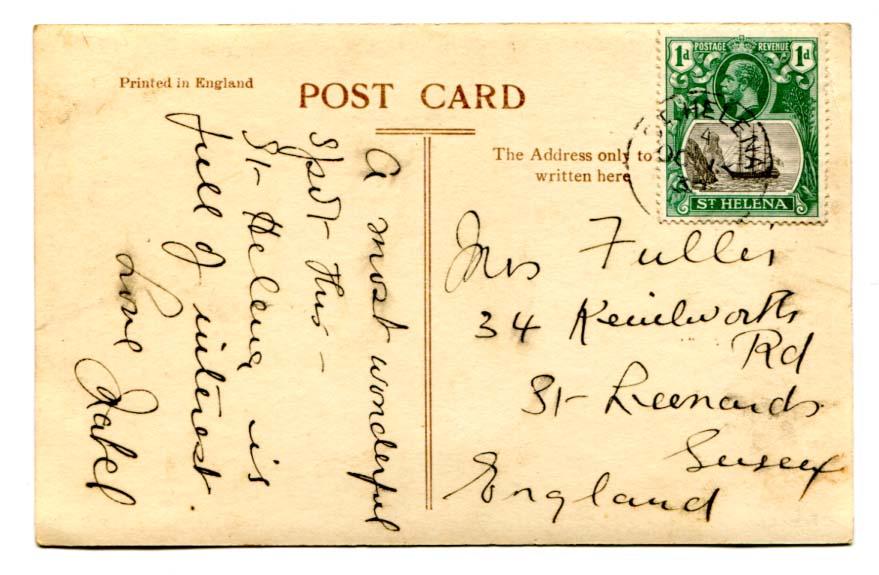 Printed in England
POST CARD
The Address only to
written here
1d POSTAGE REVENUE 1d
ST HELENA
HELENA
A most wonderful
spot this –
St Helena is
full of interest.
Love
Mrs Fuller
34 Kenilworth
Rd
St Leonards
Sussex
England